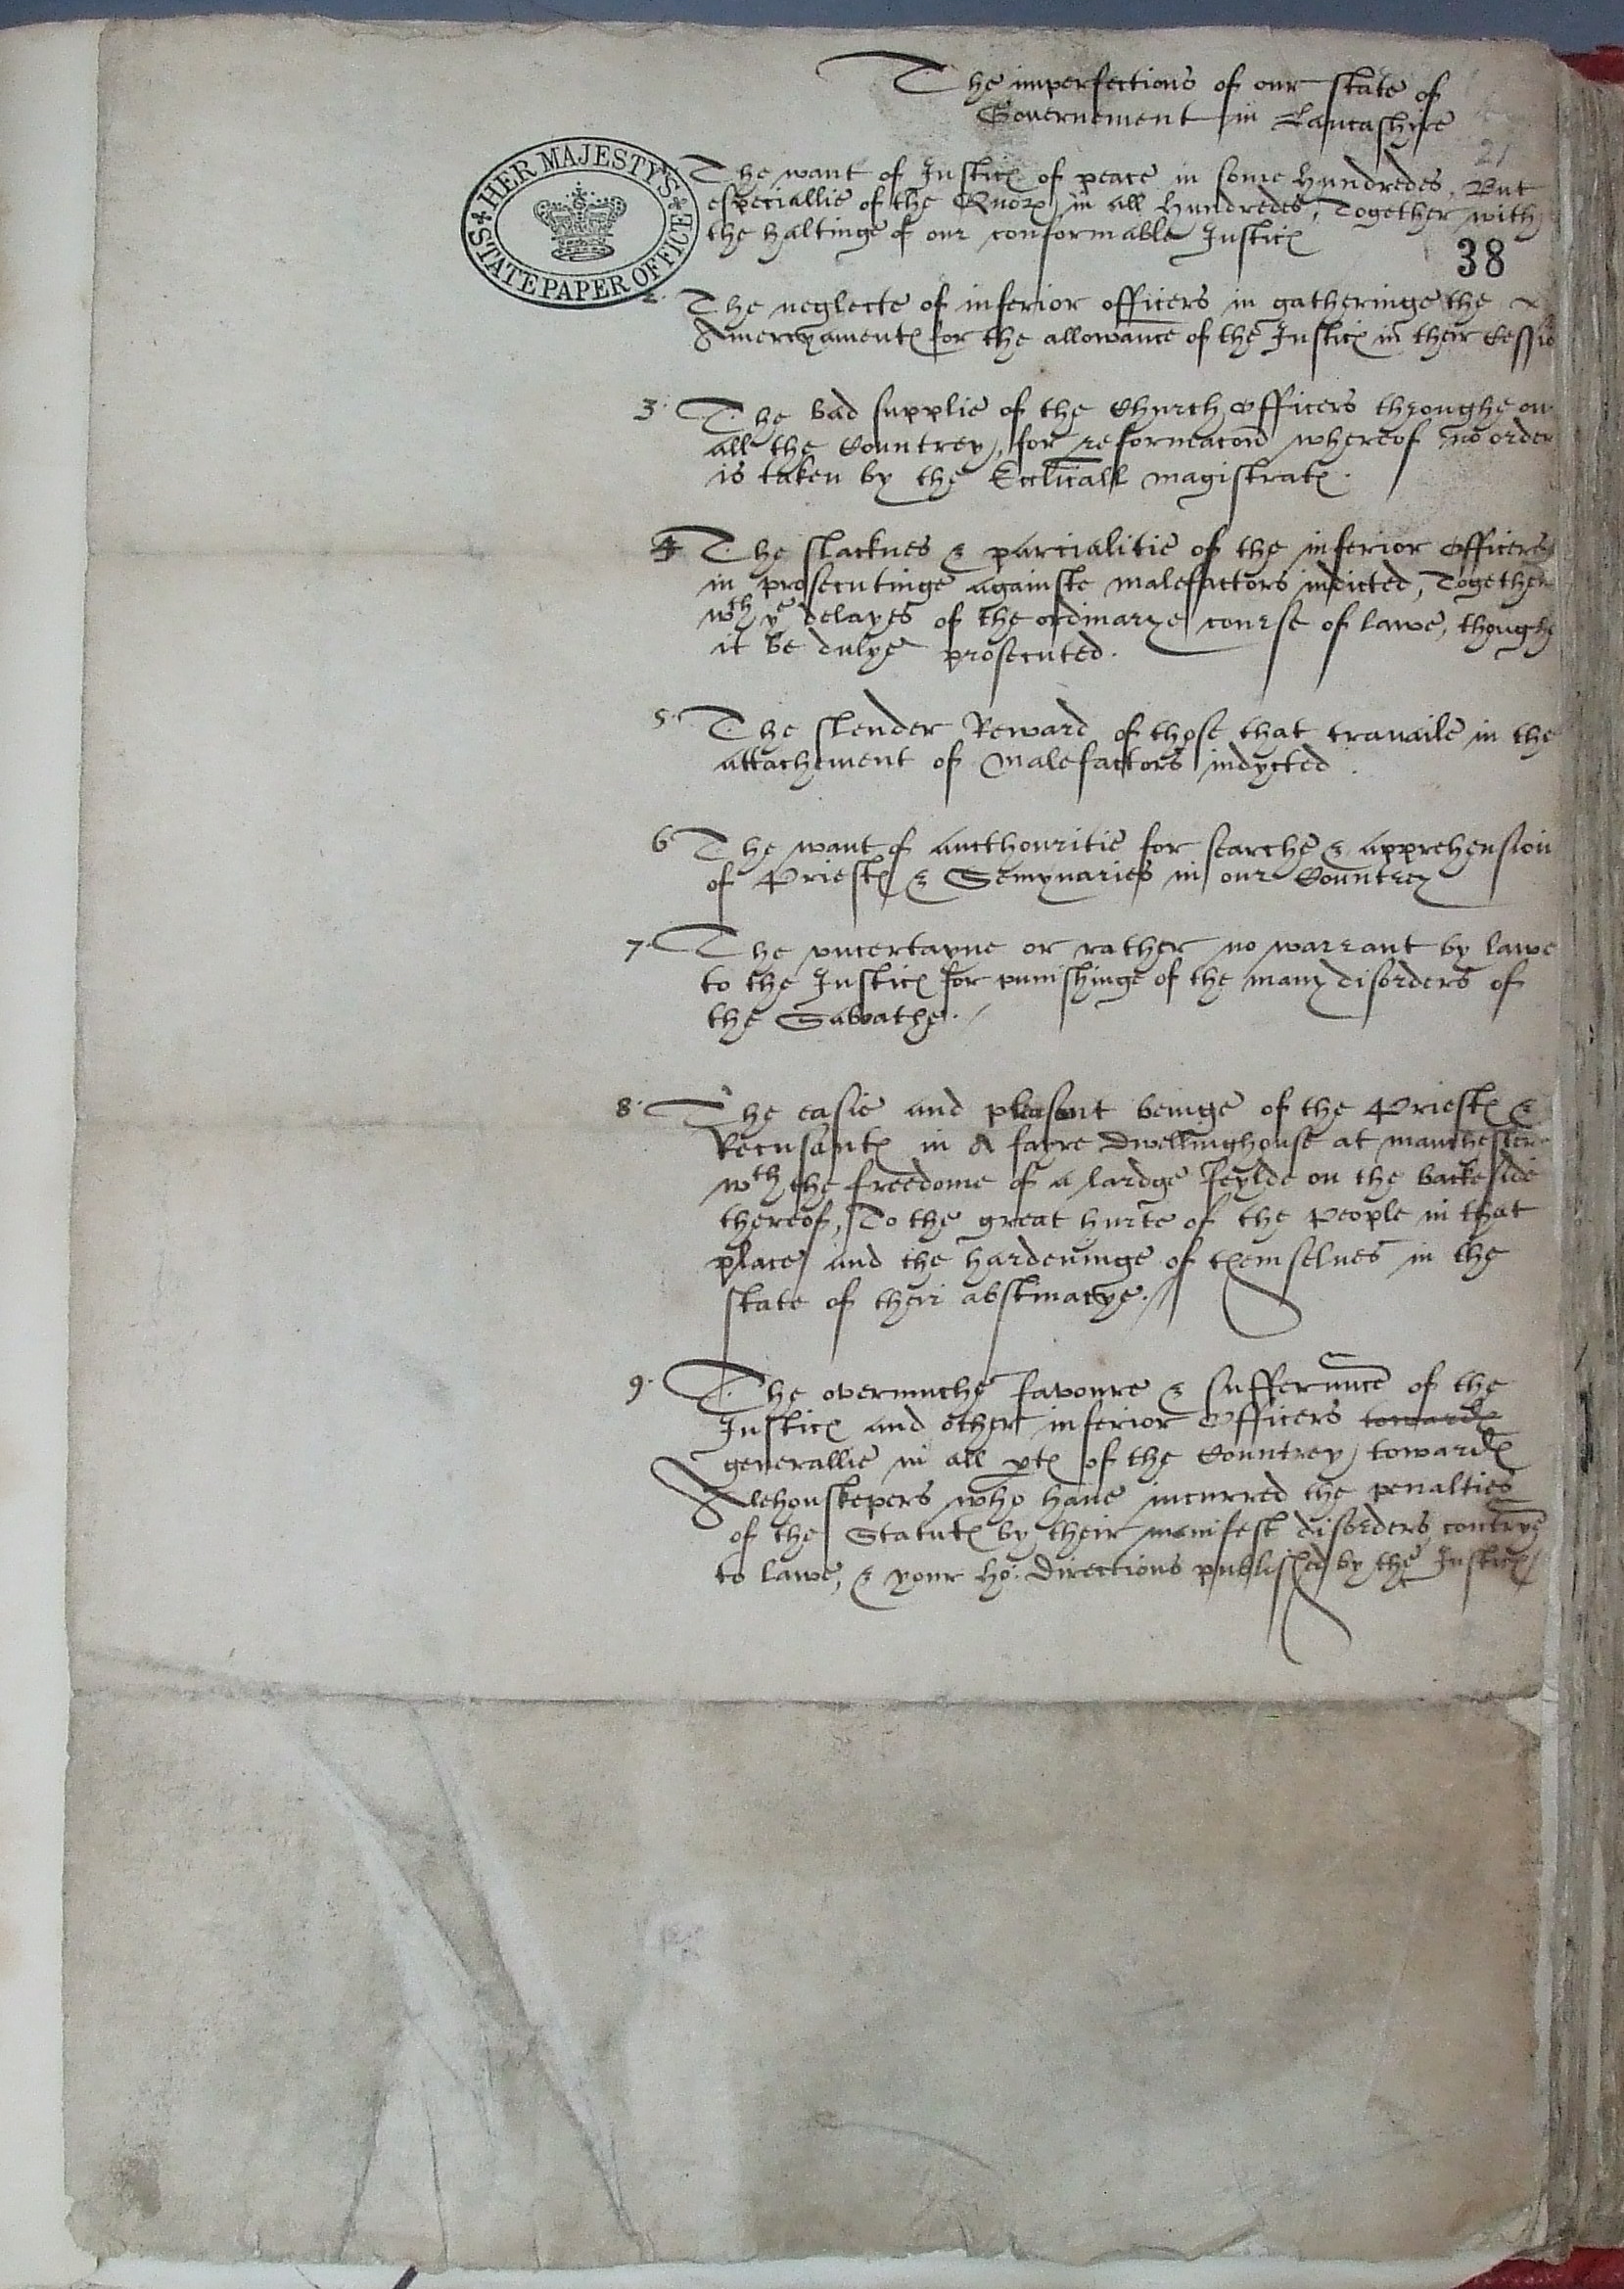 The imperfections of our state of
Governement in Lancashire
21
HER MAJESTY'S
STATE PAPER OFFICE
The want of Justices of peace in some Hundredes, But
especiallie of the Quorum in all Hundredes, Together with
the haltinge of our conformable Justices
38
2. The neglecte of inferior officers in gatheringe the
Amercyamentes for the allowance of the Justices in their Sessio
3. The bad supplie of the Church Officers throughe ou
all the Countrey, for reformacon whereof no order
is taken by the Eccliicall magistrates.
4 The slacknes & parcialitie of the inferior Officers
in prosecutinge againste malefactors indicted, Together
wth ye delayes of the ordinarye course of lawe, thoughe
it be dulye prosecuted.
5. The slender Reward of those that travaile in the
attachement of Malefactors indycted.
6 The want of aucthouritie for searche & apprehension
of Priestes & Semynaries in our Countrey
7. The uncertayne or rather no warrant by lawe
to the Justices for punishinge of the many disorders of
the Sabathe.
8. The easie and pleasant beinge of the Priestes &
Recusantes in A fayre Dwellinghouse at Manchester
wth the freedome of a lardge feylde on the backeside
thereof, To the great hurte of the People in that
place and the hardeninge of themselues in the
state of their abstinacye.
9. The overmuche favoure & sufferance of the
Justices and other inferior Officers towardes
generallie in all ptes of the Countrey, towardes
Alehouskepers who haue incurred the penalties
of the Statutes by their manifest disorders contrarye
to lawe, & your ho: Directions published by the Justices